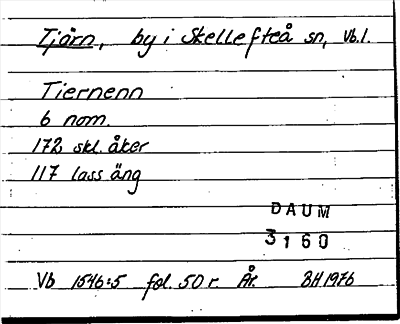 Tjärn, by i Skellefteå sn, Vb.l.
Tiernenn
6 nom.
172 skl. åker
117 lass äng
DAUM
3160
Vb 1546:5 fol. 50 r År. BH 1976